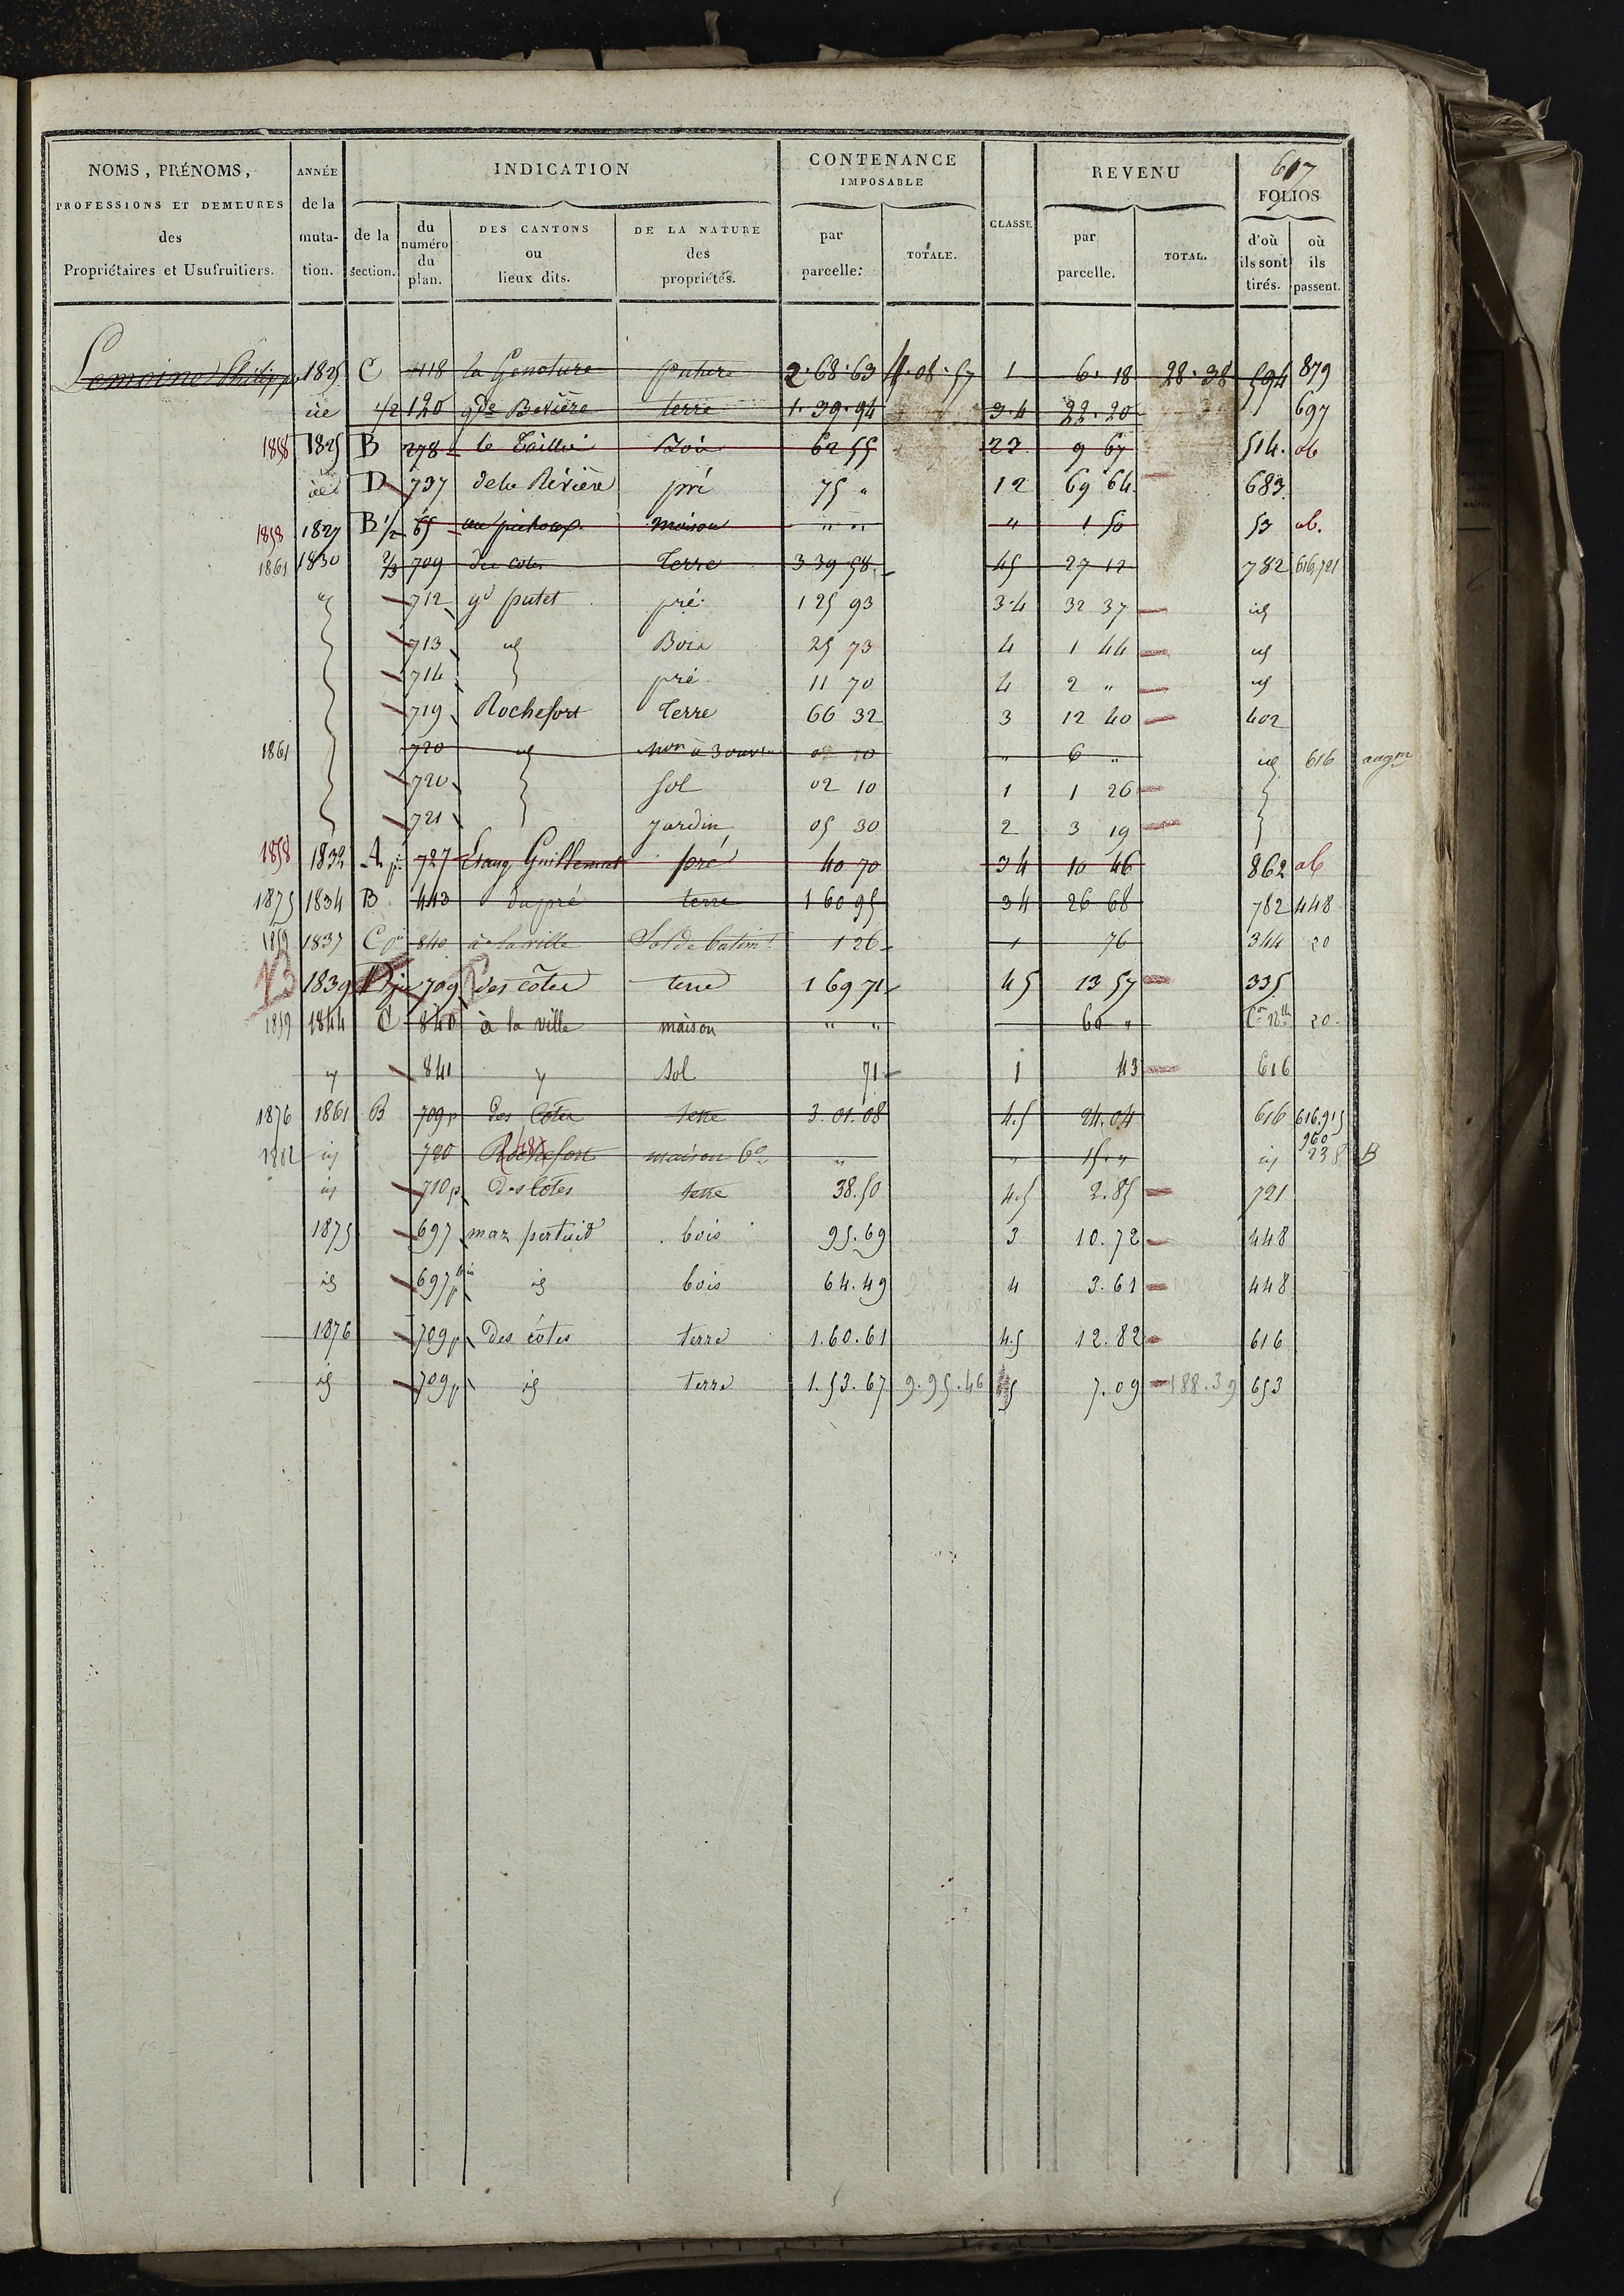 617
NOMS, PRÉNOMS, PROFESSIONS ET DEMEURES des Propriétaires et Usufruitiers. ANNÉE de la mutation. INDICATION de la section. du numéro du plan. DES CANTONS ou lieux dits. DE LA NATURE des propriétés. CONTENANCE IMPOSABLE par parcelle. TOTALE. CLASSE REVENU par parcelle. TOTAL. FOLIOS d'où ils sont tirés. où ils passent.
Lemoine Philippe 1825 C 118 la Genoture pature 2.68.63 4.08.57 1 6.18 28.38 594 879
id 1/2 120 gde Bevière terre 1.39.94 3.4 22.20 697
1858 1825 B 278 le Taillis Bois 62 55 23 9 67 514. ob
id D 737 de la Rivière pré 75 " 12 69 64 683
1858 1827 B 1/2 65 maison " " " 1 50 53 ob.
1861 1830 2/3 709 des cotes Terre 3 39 58 45 27 12 782 616, 721
" 712 gd putet pré 1 25 93 3-4 32 37 id
713 id Bois 25 73 4 1 44 id
714 pré 11 70 4 2 " id
719 Rochefort Terre 66 32 3 12 40 402
1861 720 id mon à 3 ouv " 6 " id 616 augm
720 sol 02 10 1 1 26
721 jardin 05 30 2 3 19
1858 1832 A 727 Etang Guillemat pré 40 70 34 10 46 862 ob
1875 1834 B 443 du pré terre 1 60 95 34 26 68 782 448
1859 1837 C 840 à la ville Sol de batimt 1 26 1 76 344 20
B 1839 D 709 des côtes terre 1 69 71 45 13 57 335
1859 1844 C 840 à la ville maison " " 60 " 20
" 841 " sol 71 1 43 616
1876 1861 B 709p des Cotes terre 3.01.08 4.5 24.04 616 616.915
960
1882 id 720 Rochefort maison " " 15. " id 238 B
id 710p des Cotes terre 38.50 4.5 2.85 721
1875 697 maz pertuis bois 95.69 3 10.72 448
id 697 bis p id bois 64.49 4 3.61 448
1876 709p des côtes terre 1.60.61 4.5 12.82 616
id 709p id terre 1.53.67 9.95.46 5 7.09 188.39 653